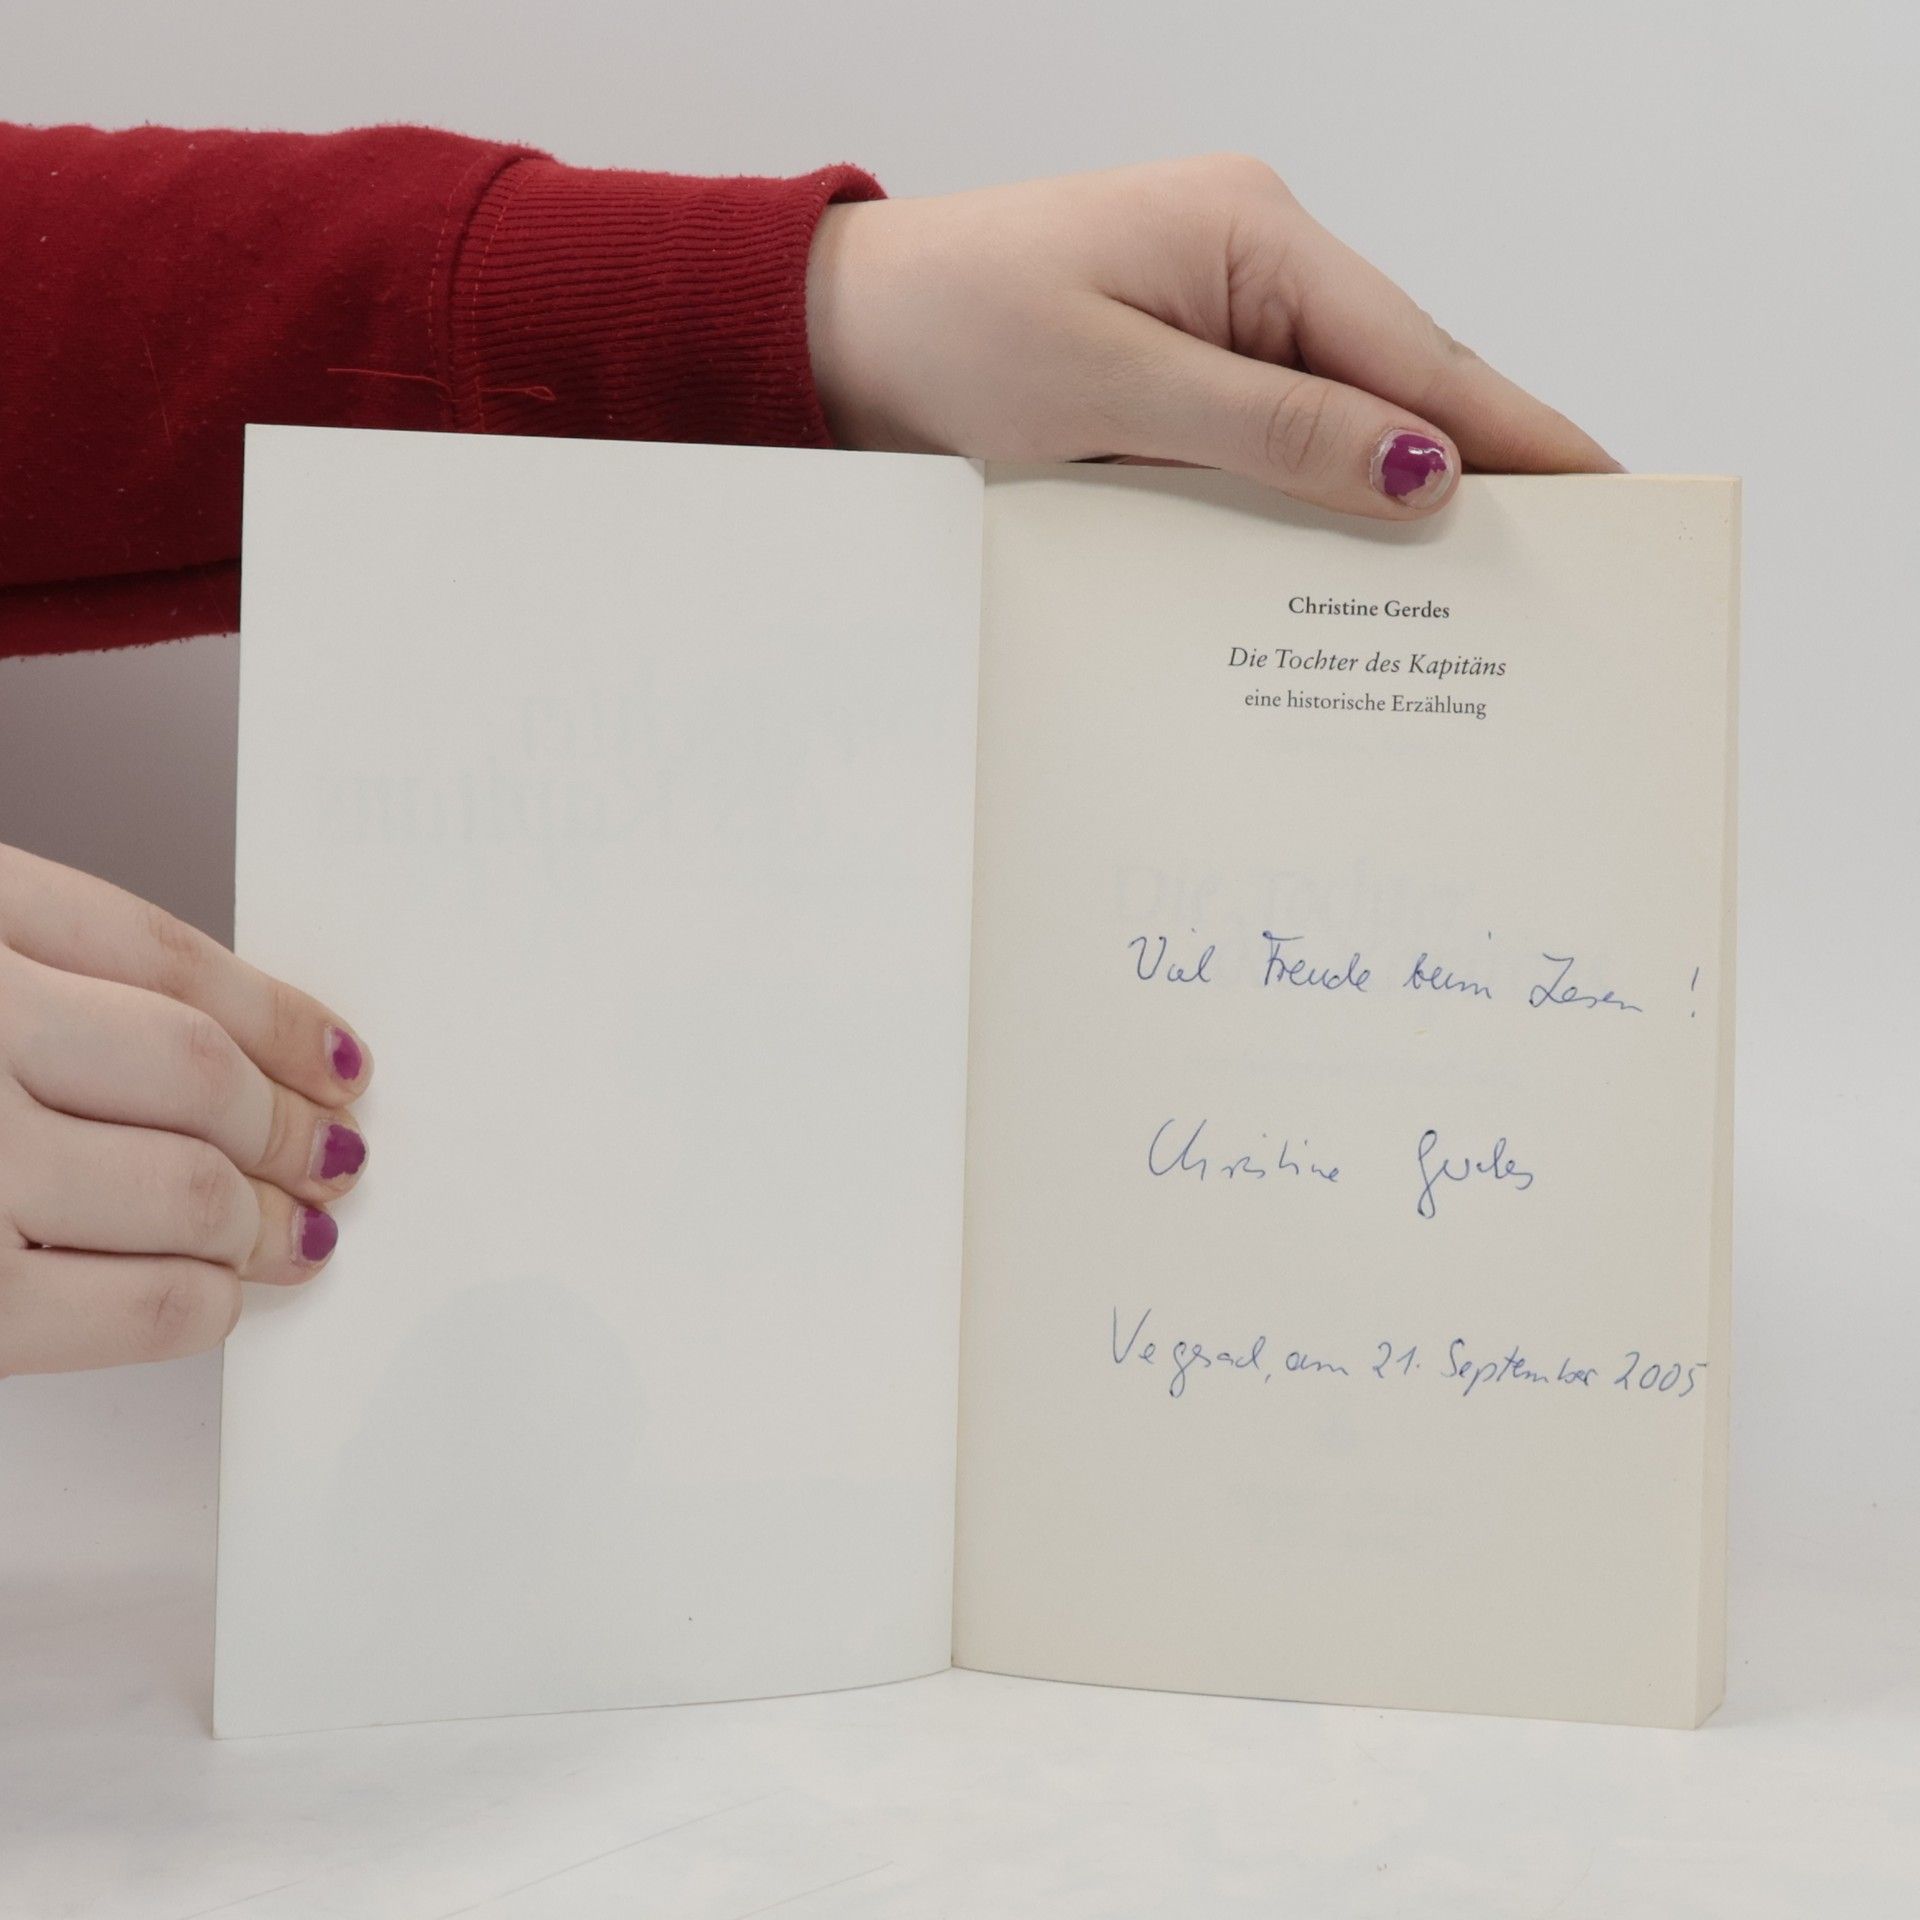 Christine Gerdes
Die Tochter des Kapitäns
eine historische Erzählung
Viel Freude beim Lesen !
Christine Gerdes
Vegesack, am 21. September 2005